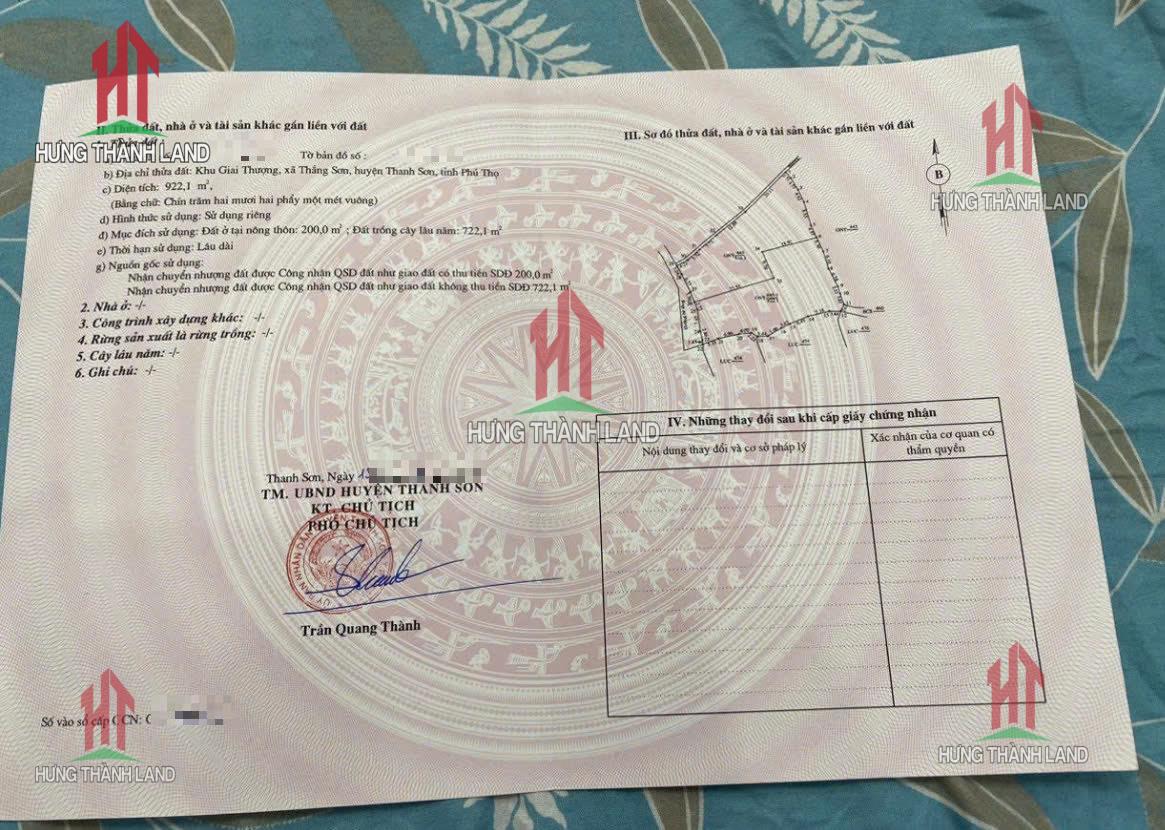 II. Thửa đất, nhà ở và tài sản khác gắn liền với đất
Tờ bản đồ số :
b) Địa chỉ thửa đất: Khu Giai Thượng, xã Thắng Sơn, huyện Thanh Sơn, tỉnh Phú Thọ
c) Diện tích: 922,1 m²,
(Bằng chữ: Chín trăm hai mươi hai phẩy một mét vuông)
d) Hình thức sử dụng: Sử dụng riêng
đ) Mục đích sử dụng: Đất ở tại nông thôn: 200,0 m² ; Đất trồng cây lâu năm: 722,1 m²
e) Thời hạn sử dụng: Lâu dài
g) Nguồn gốc sử dụng:
Nhận chuyển nhượng đất được Công nhận QSD đất như giao đất có thu tiền SDĐ 200,0 m²
Nhận chuyển nhượng đất được Công nhận QSD đất như giao đất không thu tiền SDĐ 722,1 m²
2. Nhà ở: -/-
3. Công trình xây dựng khác: -/-
4. Rừng sản xuất là rừng trồng: -/-
5. Cây lâu năm: -/-
6. Ghi chú: -/-
Thanh Sơn, Ngày
TM. UBND HUYỆN THANH SƠN
KT. CHỦ TỊCH
PHÓ CHỦ TỊCH
Trần Quang Thành
Số vào sổ cấp GCN:
III. Sơ đồ thửa đất, nhà ở và tài sản khác gắn liền với đất
B
IV. Những thay đổi sau khi cấp giấy chứng nhận
Nội dung thay đổi và cơ sở pháp lý
Xác nhận của cơ quan có
thẩm quyền
HƯNG THÀNH LAND
HƯNG THÀNH LAND
HƯNG THÀNH LAND
HƯNG THÀNH LAND
HƯNG THÀNH LAND